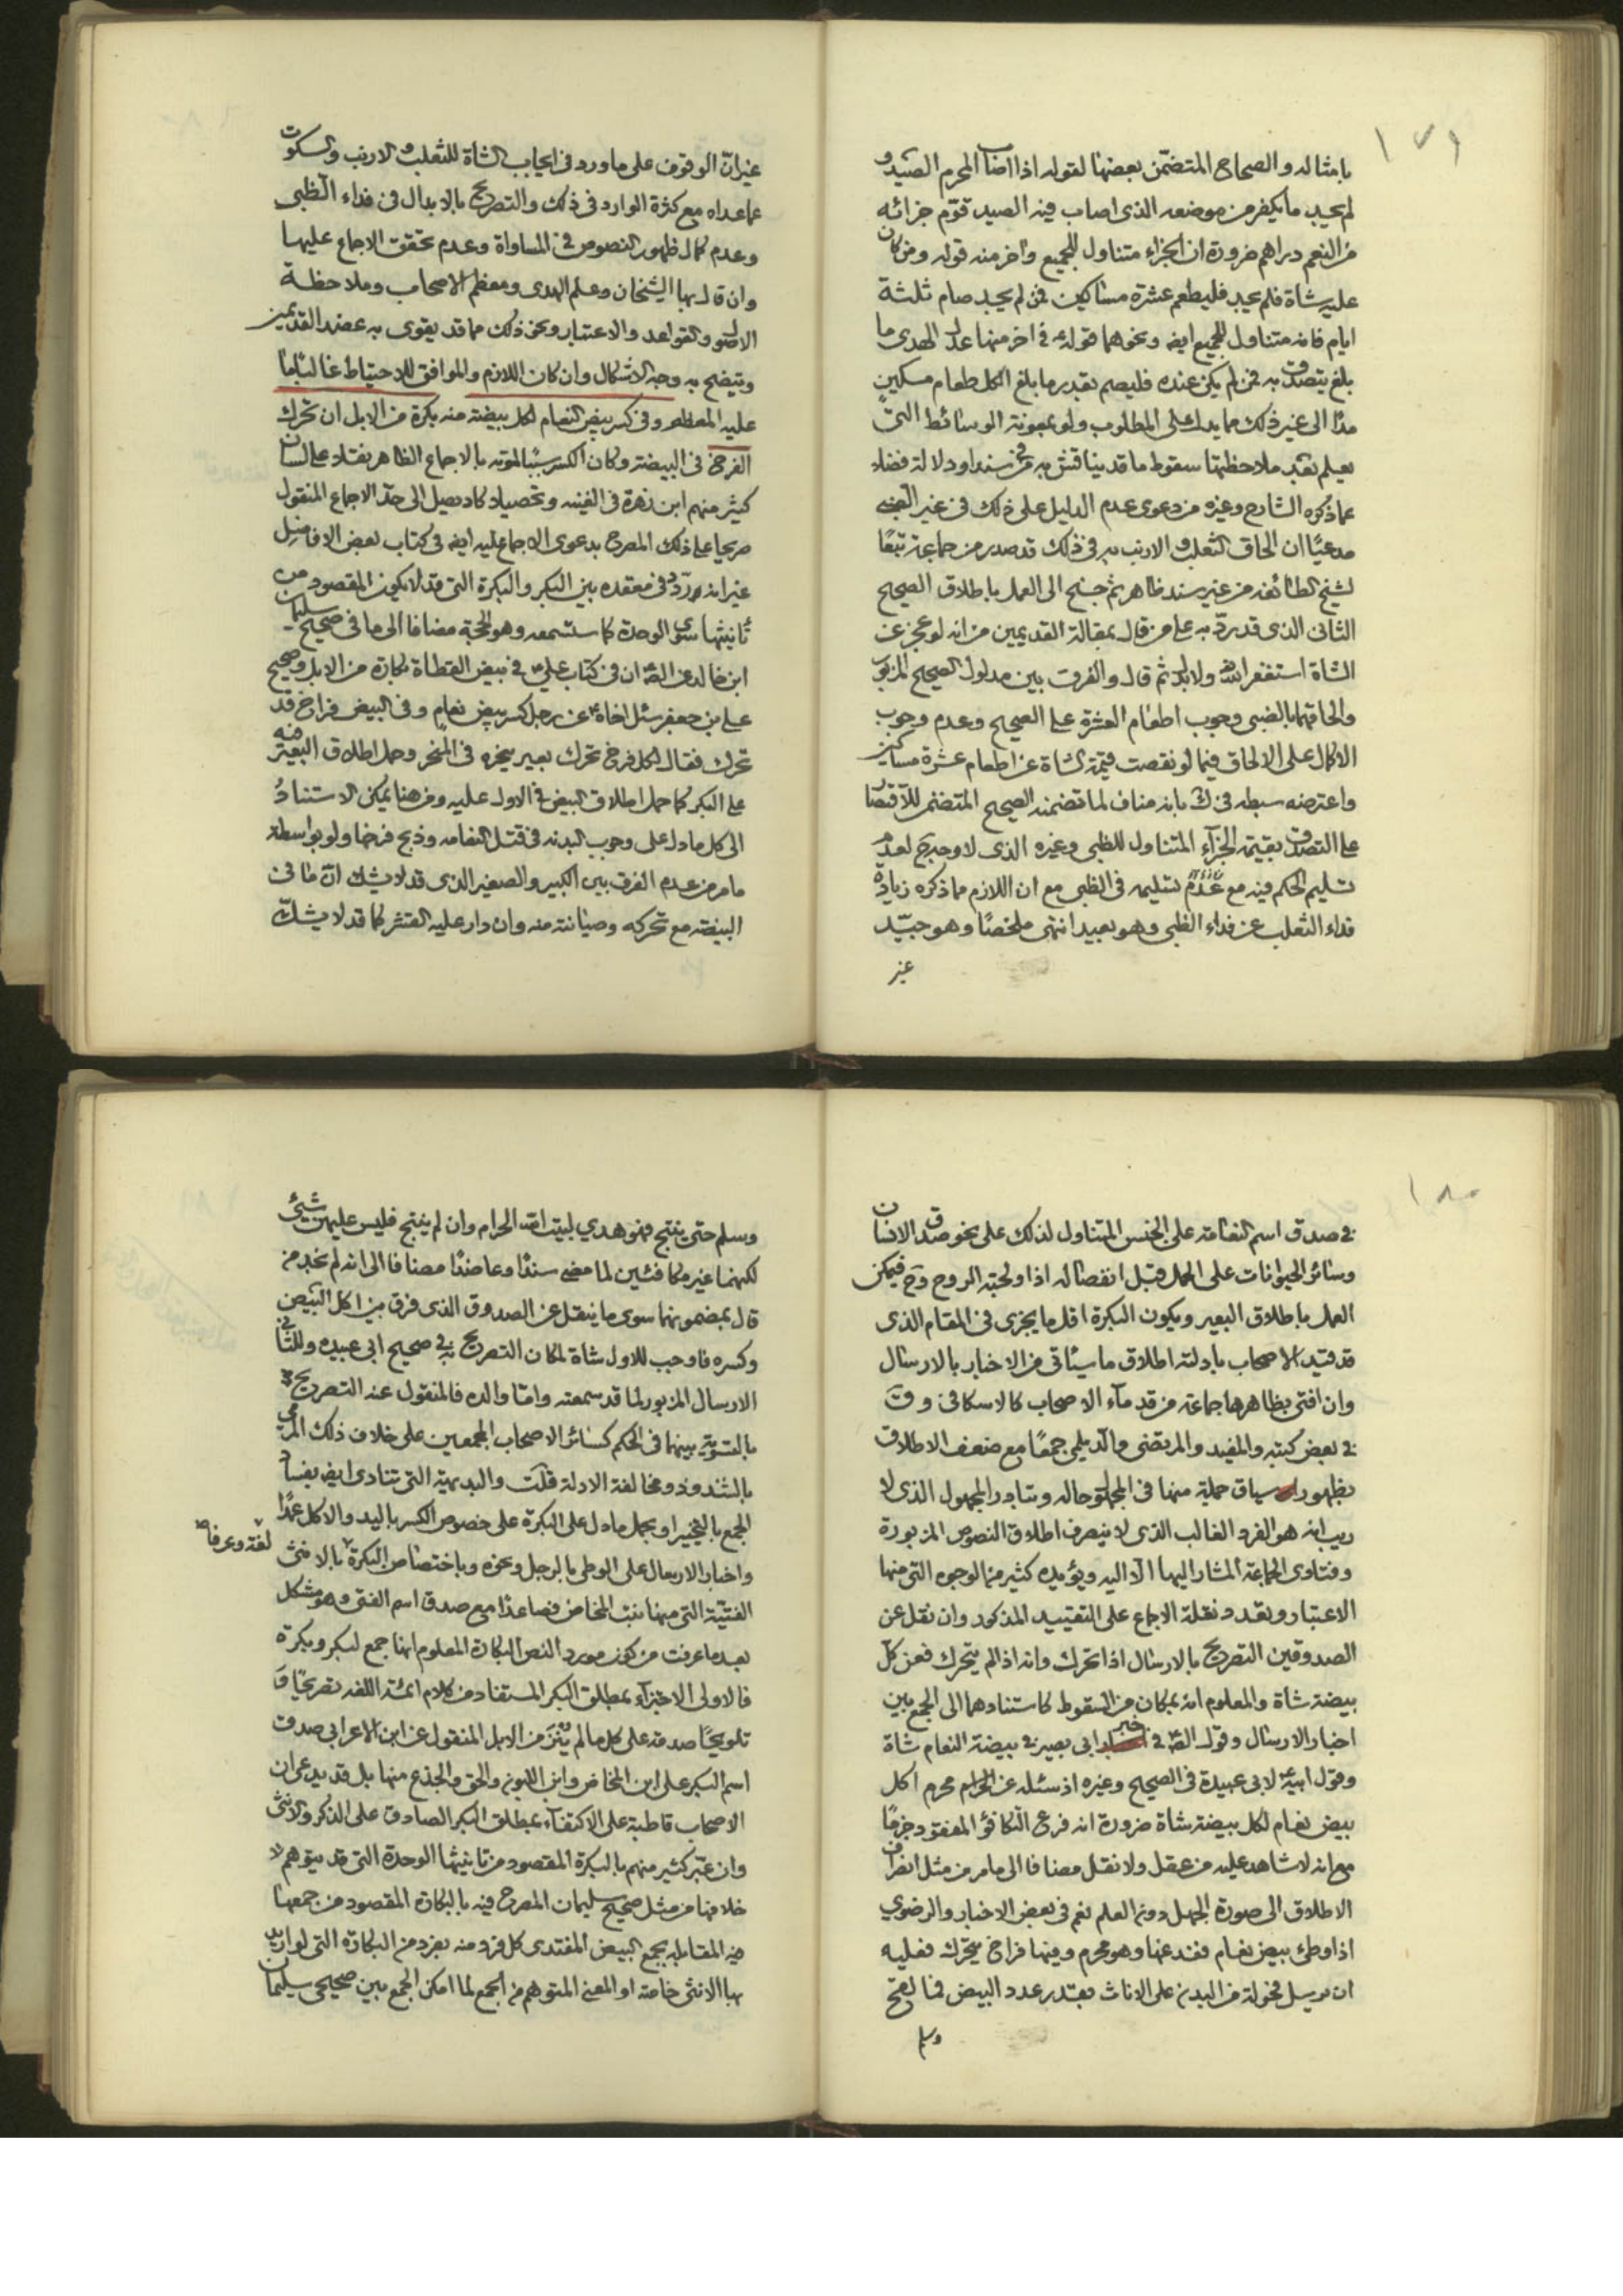 ١٧٩
بامثاله والصحاح المتضمن بعضها لقوله اذا اصاب المحرم الصيد و
لم يجد ما يكفر من موضعه الذى اصاب فيه الصيد قوّم جزائه
من النعم دراهم ضرورة ان الجزاء متناول للجميع واخر منه قوله ومن كان
عليه شاة فلم يجد فليطعم عشرة مساكين فمن لم يجد صام ثلثة
ايام فانه متناول للجميع ايضه ونحوهما قوله ع في اخر منها عدل الهدى ما
بلغ يتصدق به فمن لم يكن عنده فليصم بقدر ما بلغ لكل طعام مسكين
مدّا الى غير ذلك مما يدل على المطلوب ولو بمعونة الوسائط التى
يعلم بعد ملاحظتها سقوط ما قد يناقش به فى سندا ودلالة فضلا
عما ذكره الشارح وغيره من دعوى عدم الدليل على ذلك فى غير الظبى
مدعيًا ان الحاق الثعلب والارنب به فى ذلك قد صدر من جماعة تبعًا
لشيخ الطائفه من غير سند ظاهر ثم جنح الى العمل باطلاق الصحيح
الثانى الذى قد يردّ به على من قال بمقالة القديمين من انه لو عجز عن
الشاة استغفر الله ولا بدل ثم قال والفرق بين مدلول الصحيح المزبور
والحاقهما بالضبى وجوب اطعام العشرة على الصحيح وعدم وجوب
الاكمال على الالحاق فيما لو نقصت قيمة الشاة عن اطعام عشرة مساكين
واعترضه سبطه فى ك بانه مناف لما تضمنه الصحيح المتضمن للاقتصار
على التصدق بقيمة الجزآء المتناول للظبى وغيره الذى لا وجه لعدم
تسليم الحكم فيه مع عدم تسليمه فى الظبى مع ان اللازم مما ذكره زيادة
فداء الثعلب عن فداء الظبى وهو بعيد انتهى ملخصًا وهو جيّد
غير
غير ان الوقوف على ما ورد فى ايجاب الشاة للثعلب والارنب والسكوت
عما عداه مع كثرة الوارد فى ذلك والتصريح بالابدال فى فداء الظبى
وعدم كمال ظهور النصوص فى المساواة وعدم تحقق الاجماع عليها
وان قال بها الشيخان وعلم الهدى ومعظم الاصحاب وملاحظة
الاصول والقواعد والاعتبار ونحو ذلك مما قد يقوى به عضد القديمين
ويتضح به وجه الاشكال وان كان اللازم والموافق للاحتياط غالبا ما
عليه المعظم وفى كسر بيض النعام لكل بيضة منه بكرة من الابل ان تحرك
الفرخ فى البيضة وكان الكسر سببا لموته بالاجماع الظاهر بقتاد على لسان
كثير منهم ابن زهرة فى الغنيه وتحصيلا كاد يصل الى حدّ الاجماع المنقول
صريحا على ذلك المصرح بدعوى الاجماع عليه ايضه فى كتاب بعض الافاضل
غير انه ردّد فى معقده بين البكر والبكرة التى قد لا يكون المقصود من
تأنيثها سوى الوحدة كما ستسمعه وهو الحجة مضافا الى ما فى صحيح سليمان
ابن خالد عن الصه ان فى كتاب علي ع فى بيض القطاة بكارة من الابل وصحيح
على بن جعفر سئل اخاه ع عن رجل كسر بيض نعام وفى البيض فراخ قد
تحرك فقال لكل فرخ تحرك بعير ينحره فى المنحر وحمل اطلاق البعير فيه
على البكر كما حمل اطلاق البيض فى الاول عليه ومن هنا يمكن الاستناد
الى كل ما دل على وجوب البدنه فى قتل النعامه وذبح فرخها ولو بواسطه
ما مر من عدم الفرق بين الكبير والصغير الذى قد لا يشك ان ما فى
البيضة مع تحركه وصيانته منه وان دار عليه القشر كما قد لا يشكّ
١٨٠
فى صدق اسم النعامة على الجنس المتناول لذلك على نحو صدق الانسان
وسائر الحيوانات على الحمل قبل انفصاله اذا ولجته الروح وح فيمكن
العمل باطلاق البعير ويكون البكرة اقل ما يجزى فى المقام الذى
قد قيد الاصحاب بادلته اطلاق ما سيأتى من الاخبار بالارسال
وان افتى بظاهرها جماعة من قدمآء الاصحاب كالاسكافى و ق
فى بعض كتبه والمفيد والمرتضى والديلمى جمعًا مع ضعف الاطلاق
بظهور سياق جملة منها فى المجهول حاله وتبادر المجهول الذى لا
ريب انه هو الفرد الغالب الذى لا ينصرف اطلاق النصوص المزبورة
وفتاوى الجماعة المشار اليها الا اليه ويؤيده كثير من الوجوه التى منها
الاعتبار وتعدد نقلة الاجماع على التقييد المذكور وان نقل عن
الصدوقين التصريح بالارسال اذا تحرك وانه اذا لم يتحرك فعن كل
بيضة شاة والمعلوم انه بمكان من السقوط كاستنادهما الى الجمع بين
اخبار الارسال وقول الصه فى خبر ابى بصير فى بيضة النعام شاة
وقول ابيه ع لابى عبيدة فى الصحيح وغيره اذ سئله عن محرم اكل
بيض نعام لكل بيضة شاة ضرورة انه فرع التكافؤ المفقود جزمًا
مع انه لا شاهد عليه من عقل ولا نقل مضافا الى ما مر من مثل انصراف
الاطلاق الى صورة الجهل دون العلم نعم فى بعض الاخبار والرضوي
اذا وطئ بيض نعام ففدغها وهو محرم وفيها فراخ يتحرك فعليه
ان يرسل فحولة من البدن على الاناث بقدر عدد البيض فما لقح
وسلم
وسلم حتى ينتج فهو هدي لبيت الله الحرام وان لم ينتج فليس عليه شيئ
لكنهما غير مكافئين لما مضى سندًا وعاضدًا مضافا الى انه لم نجد من
قال بمضمونهما سوى ما ينقل عن الصدوق الذى فرق بين اكل البيض
وكسره فاوجب للاول شاة لمكان التصريح به فى صحيح ابى عبيده وللثانى
الارسال المزبور لما قد سمعته واما والده فالمنقول عنه التصريح
بالتسوية بينهما فى الحكم كسائر الاصحاب المجمعين على خلاف ذلك المرمى
بالشذوذ ومخالفة الادلة قلت والبديهة التى تنادى ايضه بفساد
الجمع بالتخيير او بحمل ما دل على البكرة على خصوص الكسر باليد والاكل عمدًا
واخبار الارسال على الوطى بالرجل ونحوه وباختصاص البكرة بالانثى
لغة وعرفا صح
الفتيّة التى مبدأها بنت المخاض فصاعدًا مع صدق اسم الفتى وهو مشكل
بعد ما عرفت من كون مورد النص البكارة المعلوم انها جمع لبكر وبكرة
فالاولى الاجتزآء بمطلق البكر المستفاد من كلام ائمة اللغه تصريحًا و
تلويحًا صدقه على كل ما لم يبزل من الابل المنقول عن ابن الاعرابى صدق
اسم البكر على ابن المخاض وابن اللبون والحق والجذع منها بل قد يدعى ان
الاصحاب قاطبة على الاكتفآء بمطلق البكر الصادق على الذكر والانثى
وان عبّر كثير منهم بالبكرة المقصود من تأنيثها الوحدة التى قد يتوهم
خلافها من مثل صحيح سليمان المصرح فيه بالبكارة المقصود من جمعها
فيه المقابلة بجمع البيض المفتدى كل فرد منه بفرد من البكارة التى لو اريد
بها الانثى خاصة او المعنى المتوهم من الجمع لما امكن الجمع بين صحيحى سليمان